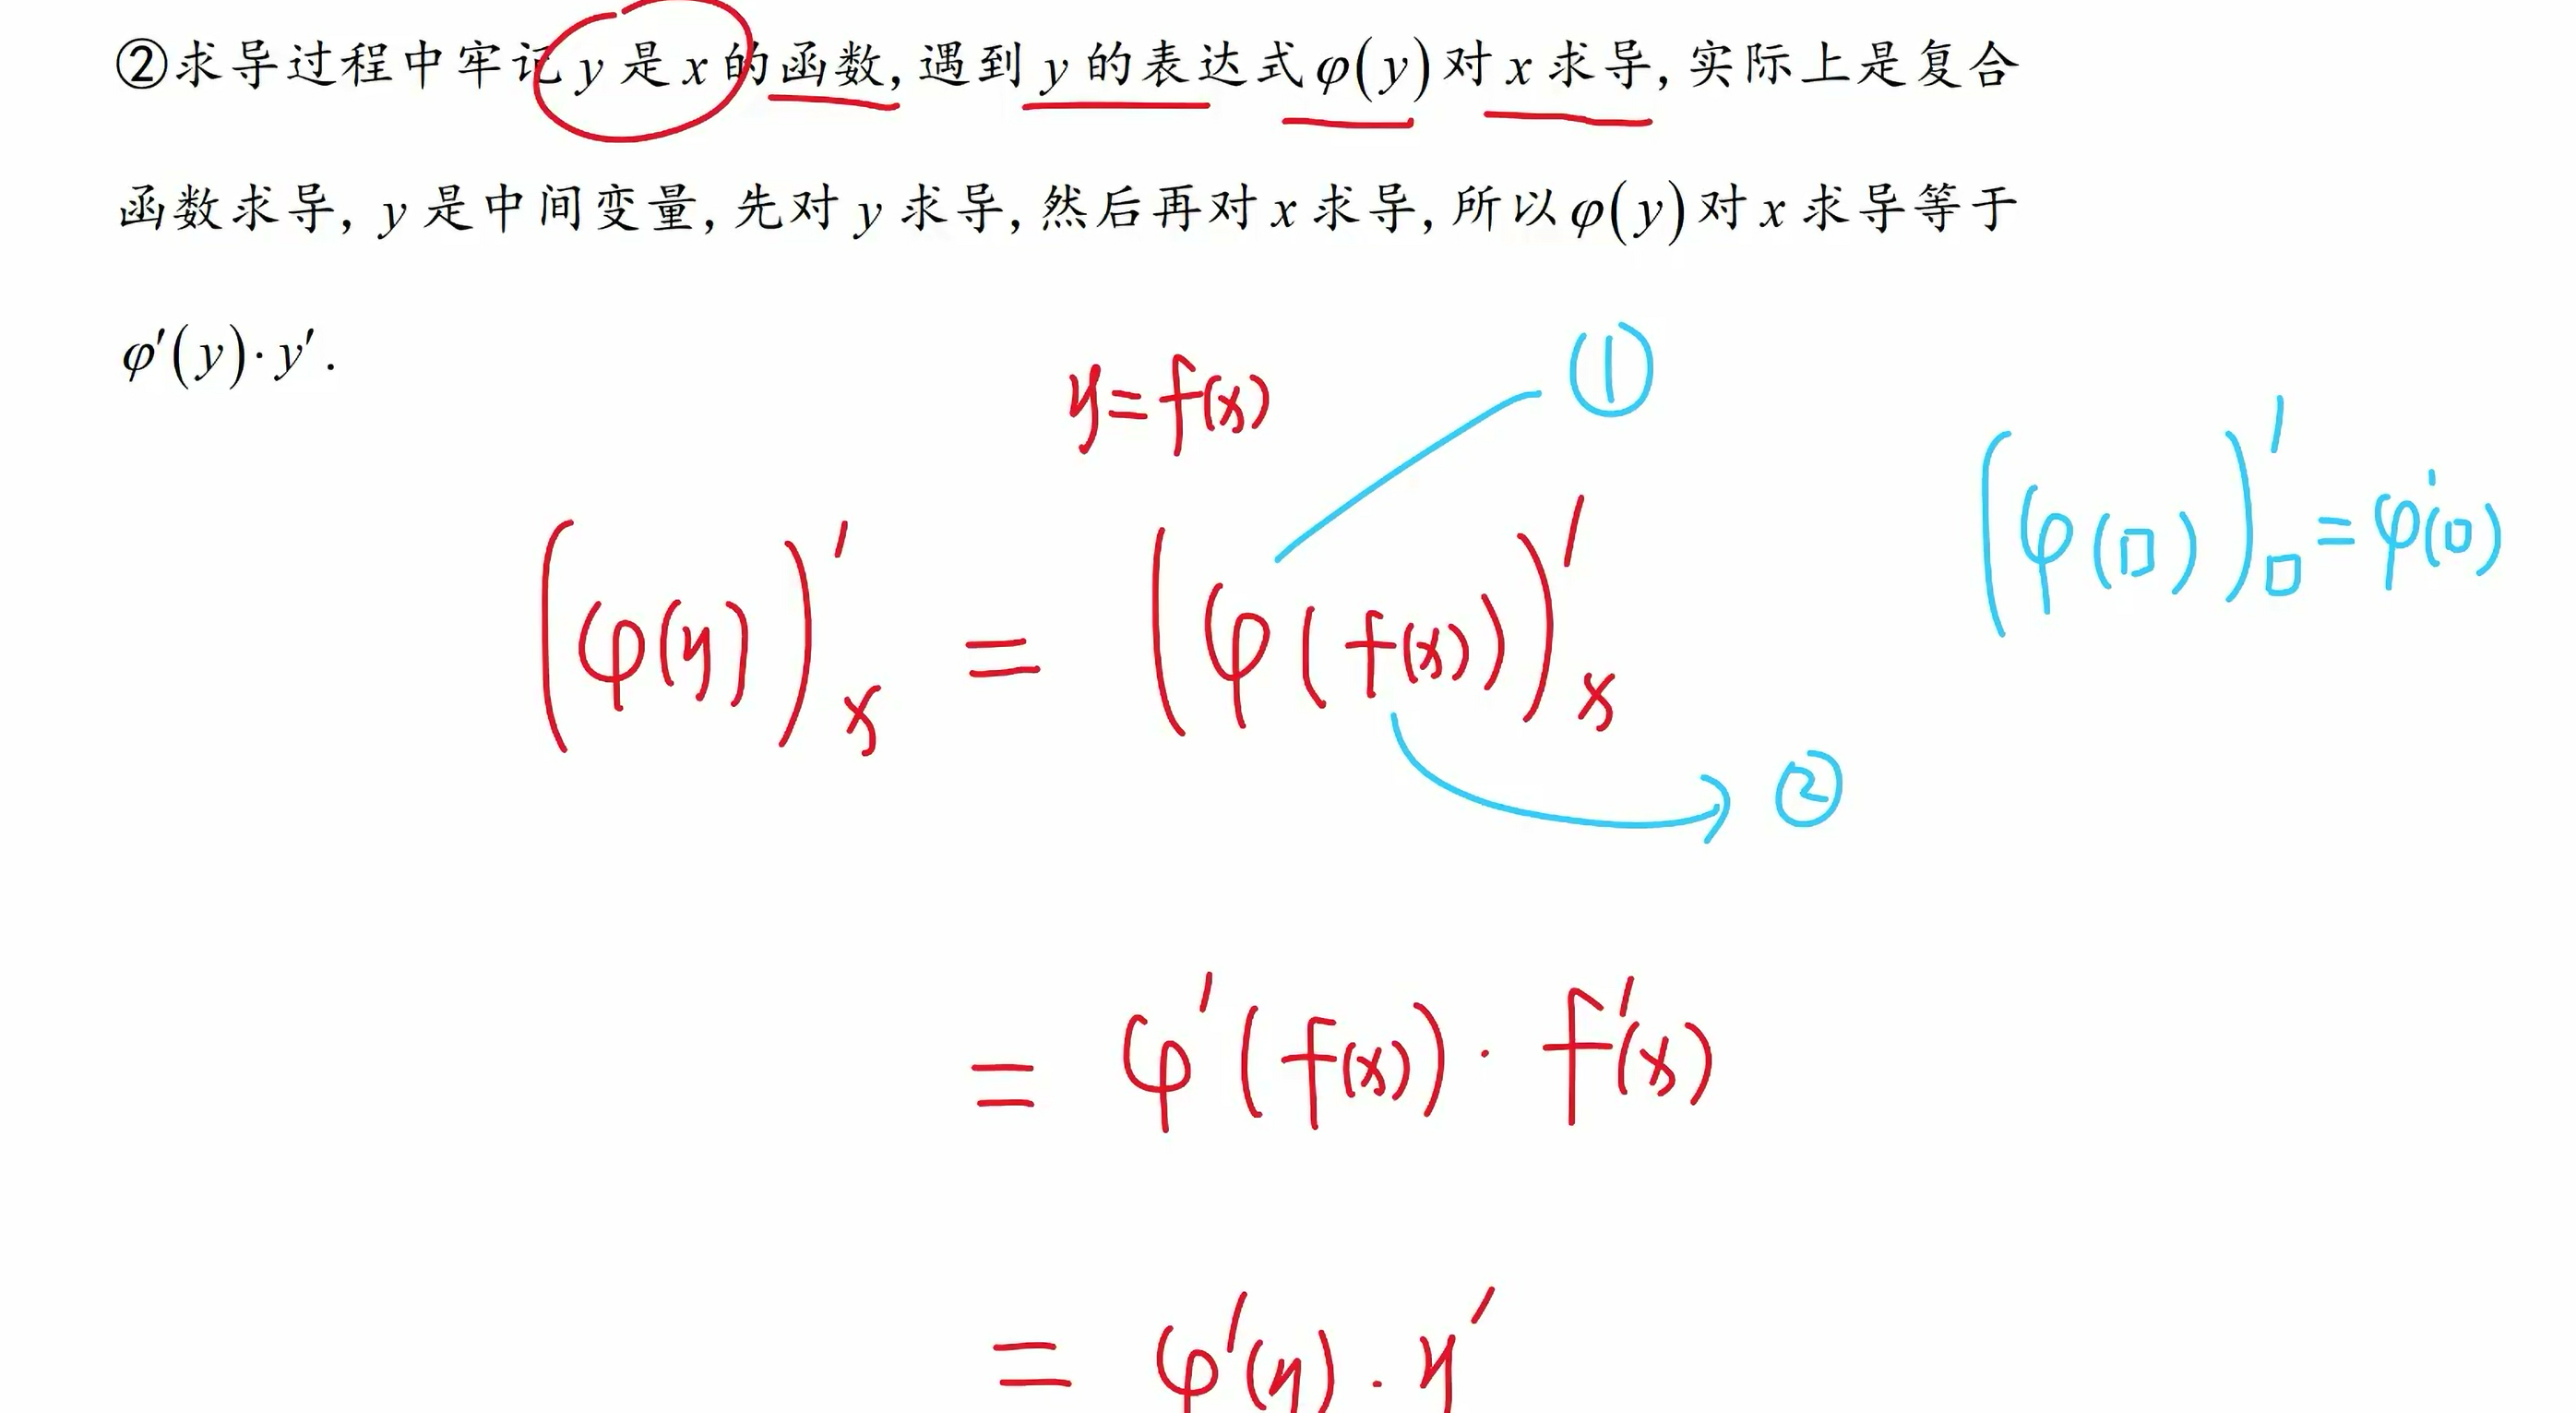 ②求导过程中牢记 y 是 x 的函数, 遇到 y 的表达式 φ(y) 对 x 求导, 实际上是复合
函数求导, y 是中间变量, 先对 y 求导, 然后再对 x 求导, 所以 φ(y) 对 x 求导等于
φ′(y)·y′.
y=f(x)
①
(φ(y))′ₓ = (φ(f(x)))′ₓ
(φ(□))′□ = φ′(□)
②
= φ′(f(x))·f′(x)
= φ′(y)·y′